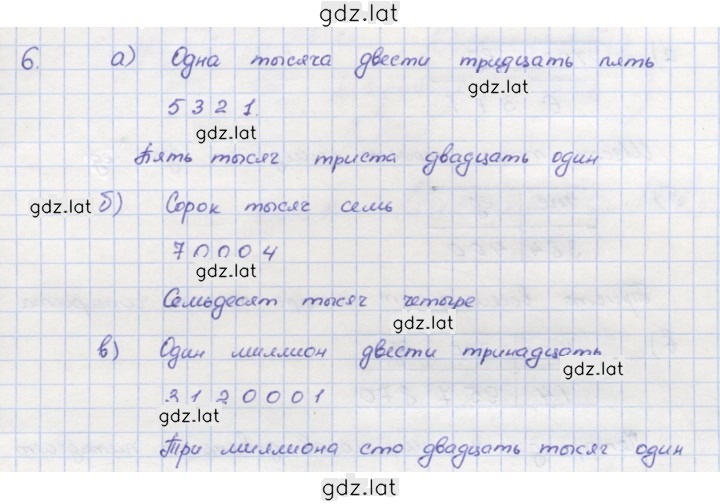 gdz.lat
6. а) Одна тысяча двести тридцать пять
gdz.lat
5 3 2 1.
gdz.lat
Пять тысяч триста двадцать один
gdz.lat б) Сорок тысяч семь
7 0 0 0 4
gdz.lat
Семьдесят тысяч четыре
gdz.lat
в) Один миллион двести тринадцать
gdz.lat
3 1 2 0 0 0 1
gdz.lat
Три миллиона сто двадцать тысяч один
gdz.lat